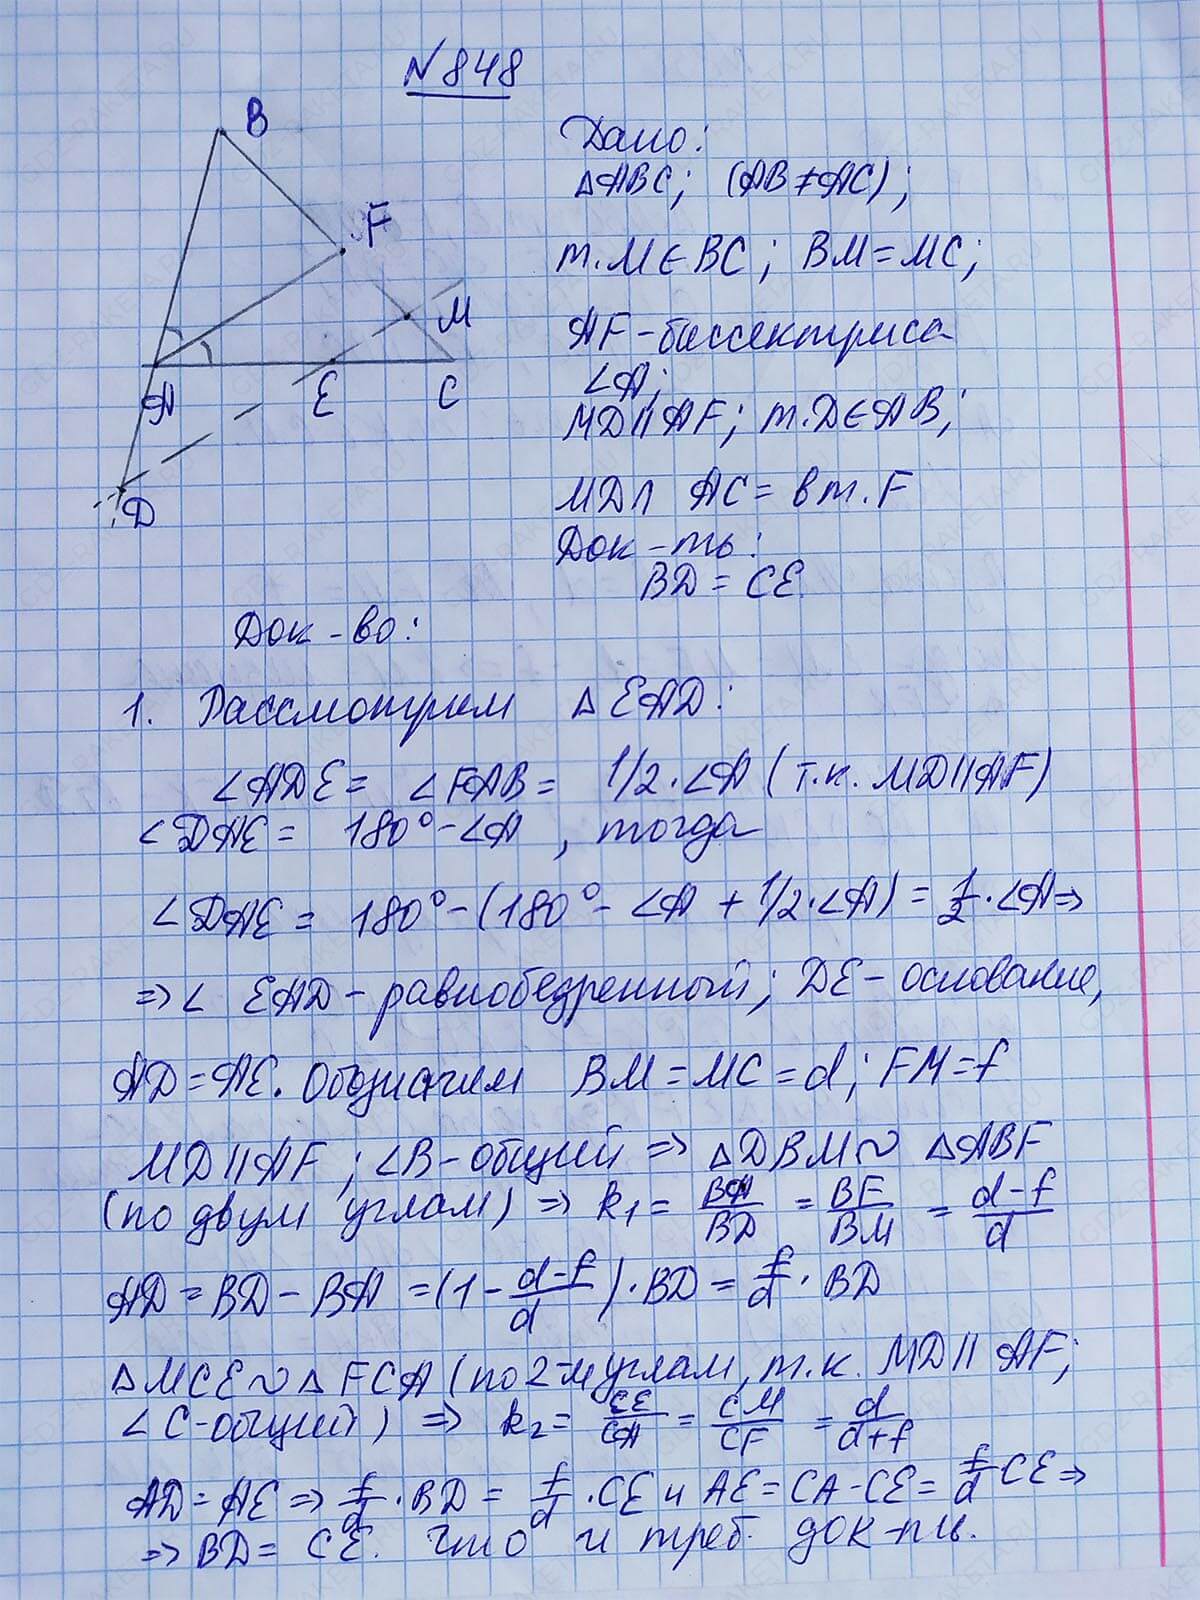 №848
B
F
M
A
E
C
D
Дано:
△ABC; (AB≠AC);
т.M∈BC; BM=MC;
AF-биссектриса
∠A;
MD||AF; т.D∈AB;
MD∩ AC= в т.F
Док-ть:
BD = CE.
Док-во:
1. Рассмотрим △EAD:
∠ADE= ∠FAB= 1/2·∠A (т.к. MD||AF)
∠DAE= 180°-∠A, тогда
∠DAE= 180°-(180°-∠A + 1/2·∠A)= 1/2·∠A⇒
⇒∠ EAD-равнобедренный; DE-основание,
AD=AE. Обозначим BM=MC=d; FM=f
MD||AF; ∠B-общий ⇒ △DBM∼ △ABF
(по двум углам) ⇒ k₁= BA/BD = BF/BM = d-f/d
AD=BD-BA=(1-d-f/d)·BD= f/d·BD
△MCE∼△FCA (по 2-м углам, т.к. MD|| AF;
∠C-общий) ⇒ k₂= CE/CA = CM/CF = d/d+f
AD=AE⇒ f/d·BD= f/d·CE и AE=CA-CE= f/d CE⇒
⇒ BD= CE. Что и треб. док-ть.